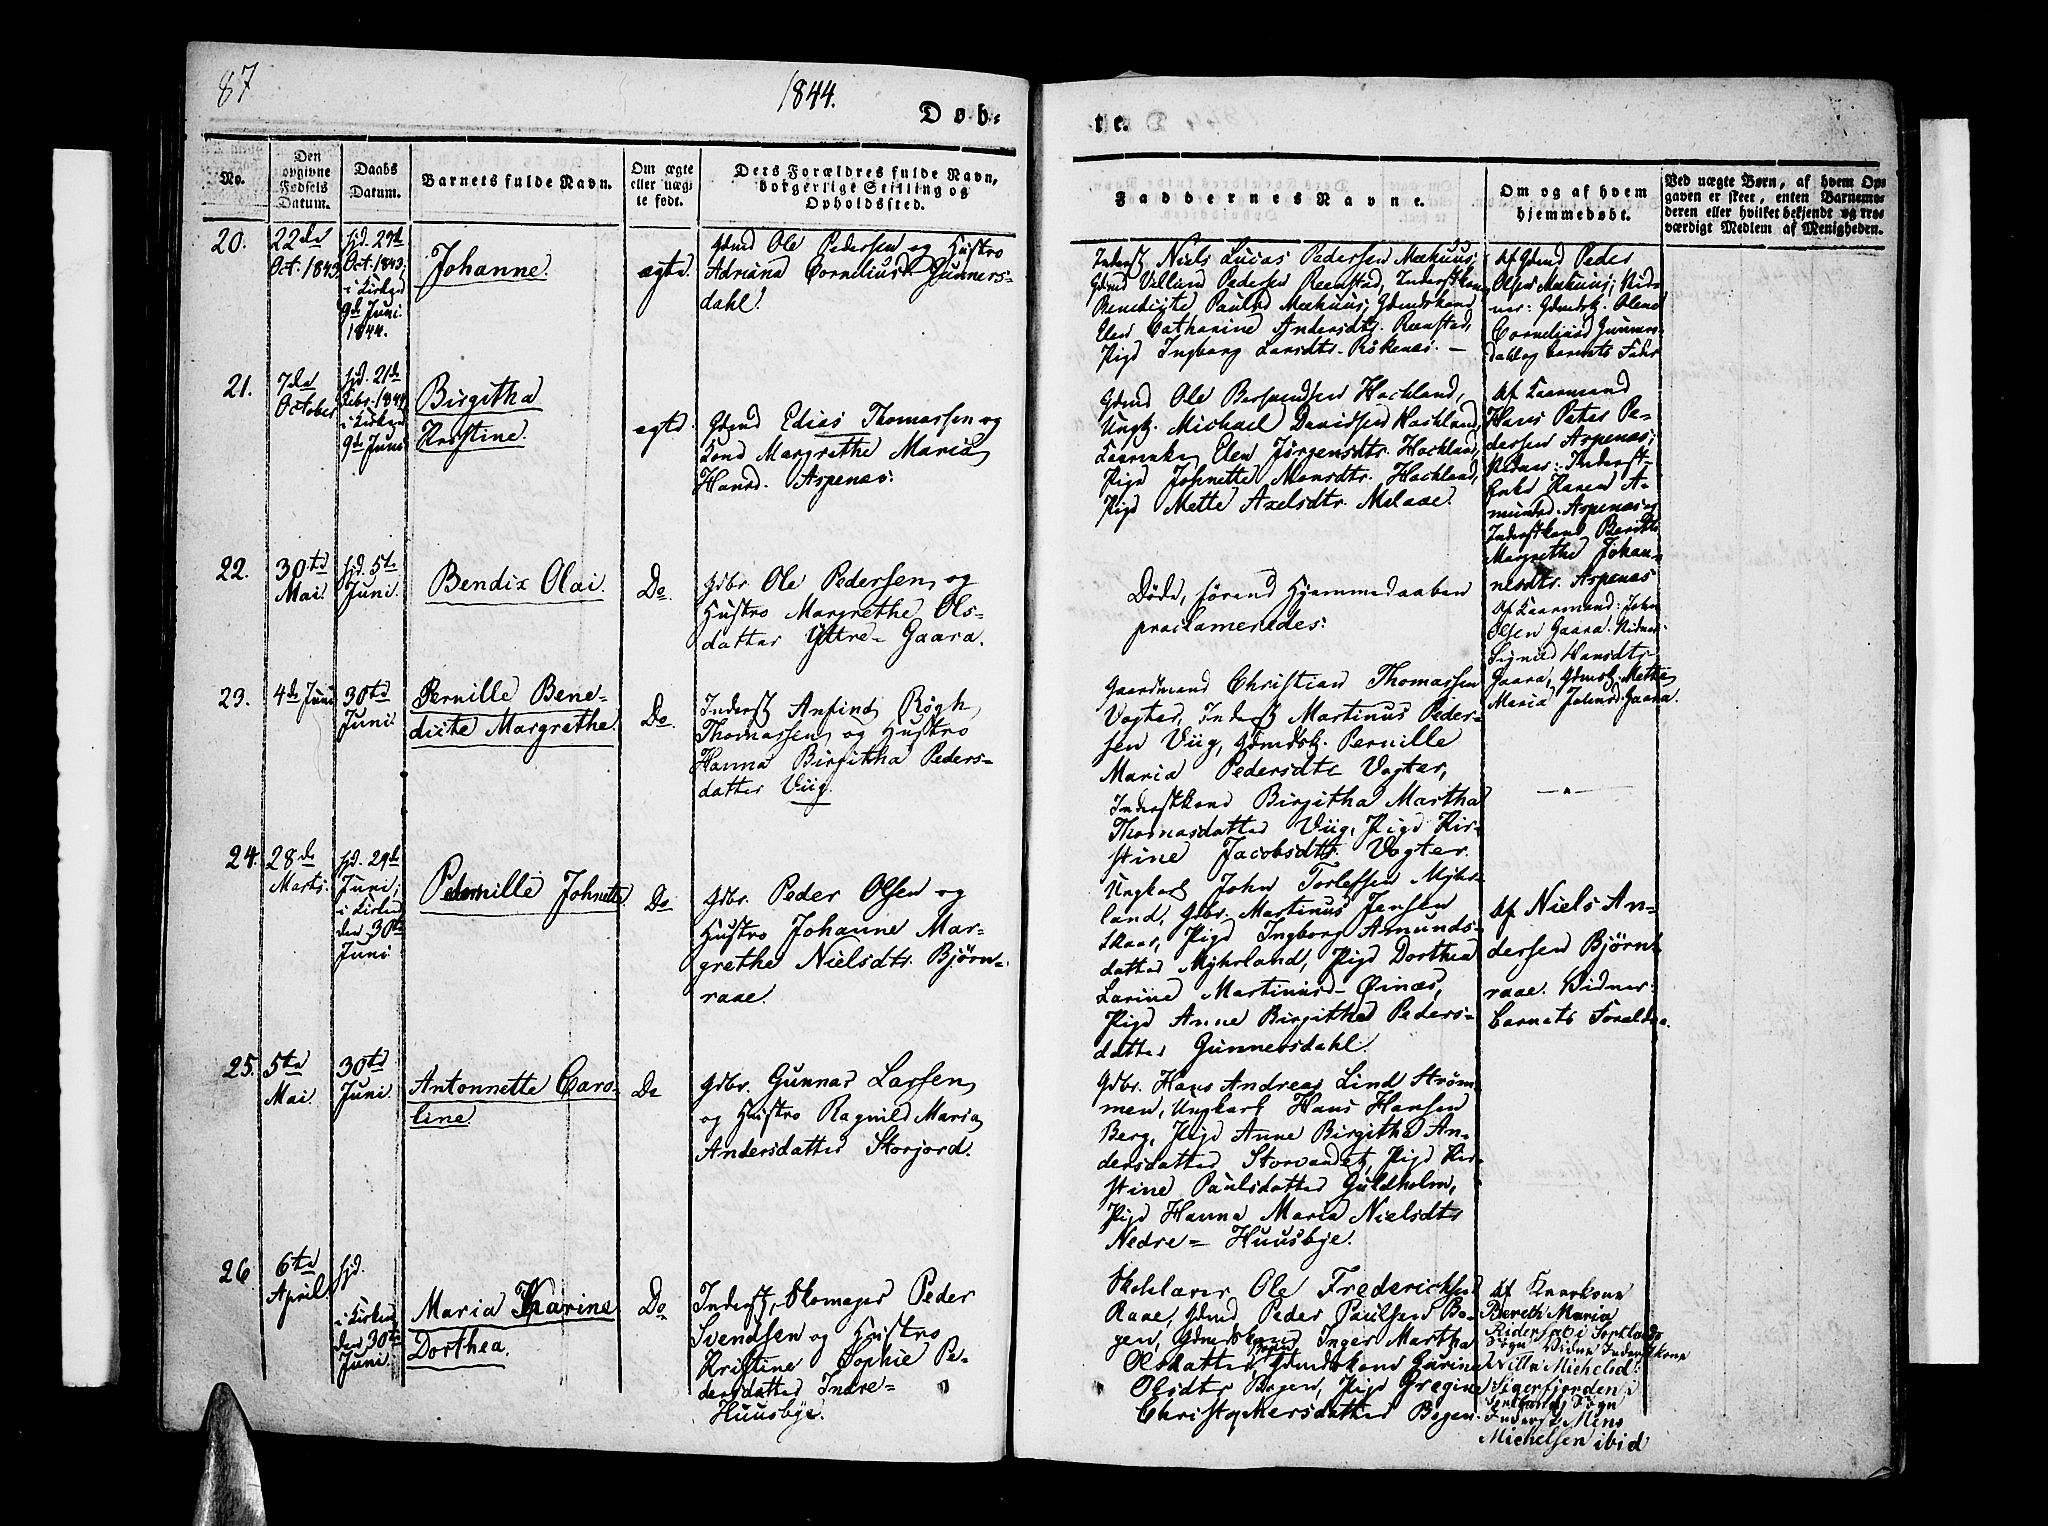 87
1844.
Døb-
te.
No.
Den
opgivne
Fødsels
Datum.
Daabs
Datum.
Barnets fulde Navn.
Om ægte
eller uægte
født.
Dets Forældres fulde Navn,
borgerlige Stilling og
Opholdssted.
Faddernes Navne.
Om og af hvem
hjemmedøbt.
Ved uægte Børn, af hvem Op-
gaven er skeet, enten Barnemo-
deren eller hvilket bekjendt og tro-
værdigt Medlem af Menigheden.
20.
22de
Oct. 1843
hjd. 29de
Oct. 1843,
i Kirken
9de Juni
1844.
Johanne.
ægte.
Gdmd Ole Pedersen og Hustro
Adriana Corneliusd. Gunners-
dahl.
Inderst Niels Lucas Pedersen Mækuus,
Gdmd Pedersen Reenstad, Inderstkone
Benedicte Paulsd Mækuus, Gdmdskone
Elen Catharine Andersdtr. Reenstad,
Pige Ingborg Larsdtr. Røkenæs. —
Af Gdmd Peder
Olsen Mækuus; Vid-
ner: Gdmdsk. Olene
Corneliusd Gunners-
dahl og barnets Fader
21.
7de
October
hjd. 21de
Febr. 1844
i Kirken
9de Juni
Birgitha
Kristine.
ægte.
Gdmd Edias Thomassen og
Kone Margrethe Maria
Hansd. Aspenæs.
Gdmd Ole Hockland,
Ungk. Michael Davidsen Hockland,
Elen Jørgensdtr. Hockland,
Pige Johnette Monsdtr. Hockland,
Pige Mette Axelsdtr. Melaae.
Af Kaarmand
Hans Peter Pe-
dersen Aspenæs;
Vidner: Inderst-
enke Karen A-
mundsd. Aspenæs og
Inderstkone Berith
Margrethe Johan-
nesdtr. Aspenæs
22.
30te
Mai.
hjd. 5te
Juni.
Bendix Olai.
Do.
Gdbr. Ole Pedersen og
Hustro Margrethe Ols-
datter Yttre-Gaara.
Døde, førend Hjemmedaaben
proclameredes.
Af Kaarmand: John
Olsen Gaara. Vidner:
Signild Hansdtr
Gaara, Gdmsk. Mette
Maria Johnsd Gaara.
23.
4de Juni
30te
Juni
Pernille Bene-
dicte Margrethe.
Do.
Inderst Anfind Røgh
Thomassen og Hustro
Hanna Birgitha Peders-
datter Viig.
Gaardmand Christian Thomassen
Vogter, Inderst Martinus Peder-
sen Viig, Gdmdsk. Pernille
Maria Pedersdtr Vogter,
Inderstkone Birgitha Martha
Thomasdatter Viig, Pige Kir-
stine Jacobsdtr. Vogter.
— " —
24.
28de
Marts.
hjd. 29de
Juni;
i Kirken
den 30te
Juni
Pernille Johnette
Do
Gdbr. Peder Olsen og
Hustro Johanne Mar-
grethe Nielsdtr. Bjørn-
raae.
Ungkarl John Torlefsen Myhr-
land, Gdbr. Martinus Jensen
Skaar, Pige Ingborg Asmunds-
datter Myhrland, Pige Dorthea
Larine Martinusd Øinæs,
Pige Anne Birgitha Peders-
datter Gunnersdahl.
Af Niels An-
dersen Bjørn-
raae. Vidner:
barnets Forældre.
25.
5te
Mai.
30te
Juni.
Antonnette Caro-
line.
Do
Gdbr. Gunnar Larsen
og Hustro Ragnild Maria
Andersdatter Storjord.
Gdbr. Hans Andreas Lind Strøm-
men, Ungkarl Hans Hansen
Berg, Pige Anne Birgitha An-
dersdatter Storvandet, Pige Kir-
stine Paulsdatter Guldholm,
Pige Hanna Maria Nielsdtr
Nedre-Huusbye.
26
6te
April
hjd.
i Kirken
den 30te
Juni.
Maria Karine
Dorthea.
Do
Inderst, Skomager Peder
Svendsen og Hustro
Kristine Sophie Pe-
dersdatter Indre-
Huusbye.
Skolelærer Ole Frederichsen
Raae, Gdmd Peder Paulsen Bo-
gen, Gdmdskone Inger Martha
Olsdatter Bogen Gdmdskone Gurine
Olsdtr Bogen, Pige Gregine
Christophersdatter Bogen.
Af Knarkone
Bereth Maria
i Sortlands
Sogn Vidner Inderstkone
Nilla Michelsd.
Sigerfjorden i
Sortlands Sogn
Inderst Mens
Michelsen ibid